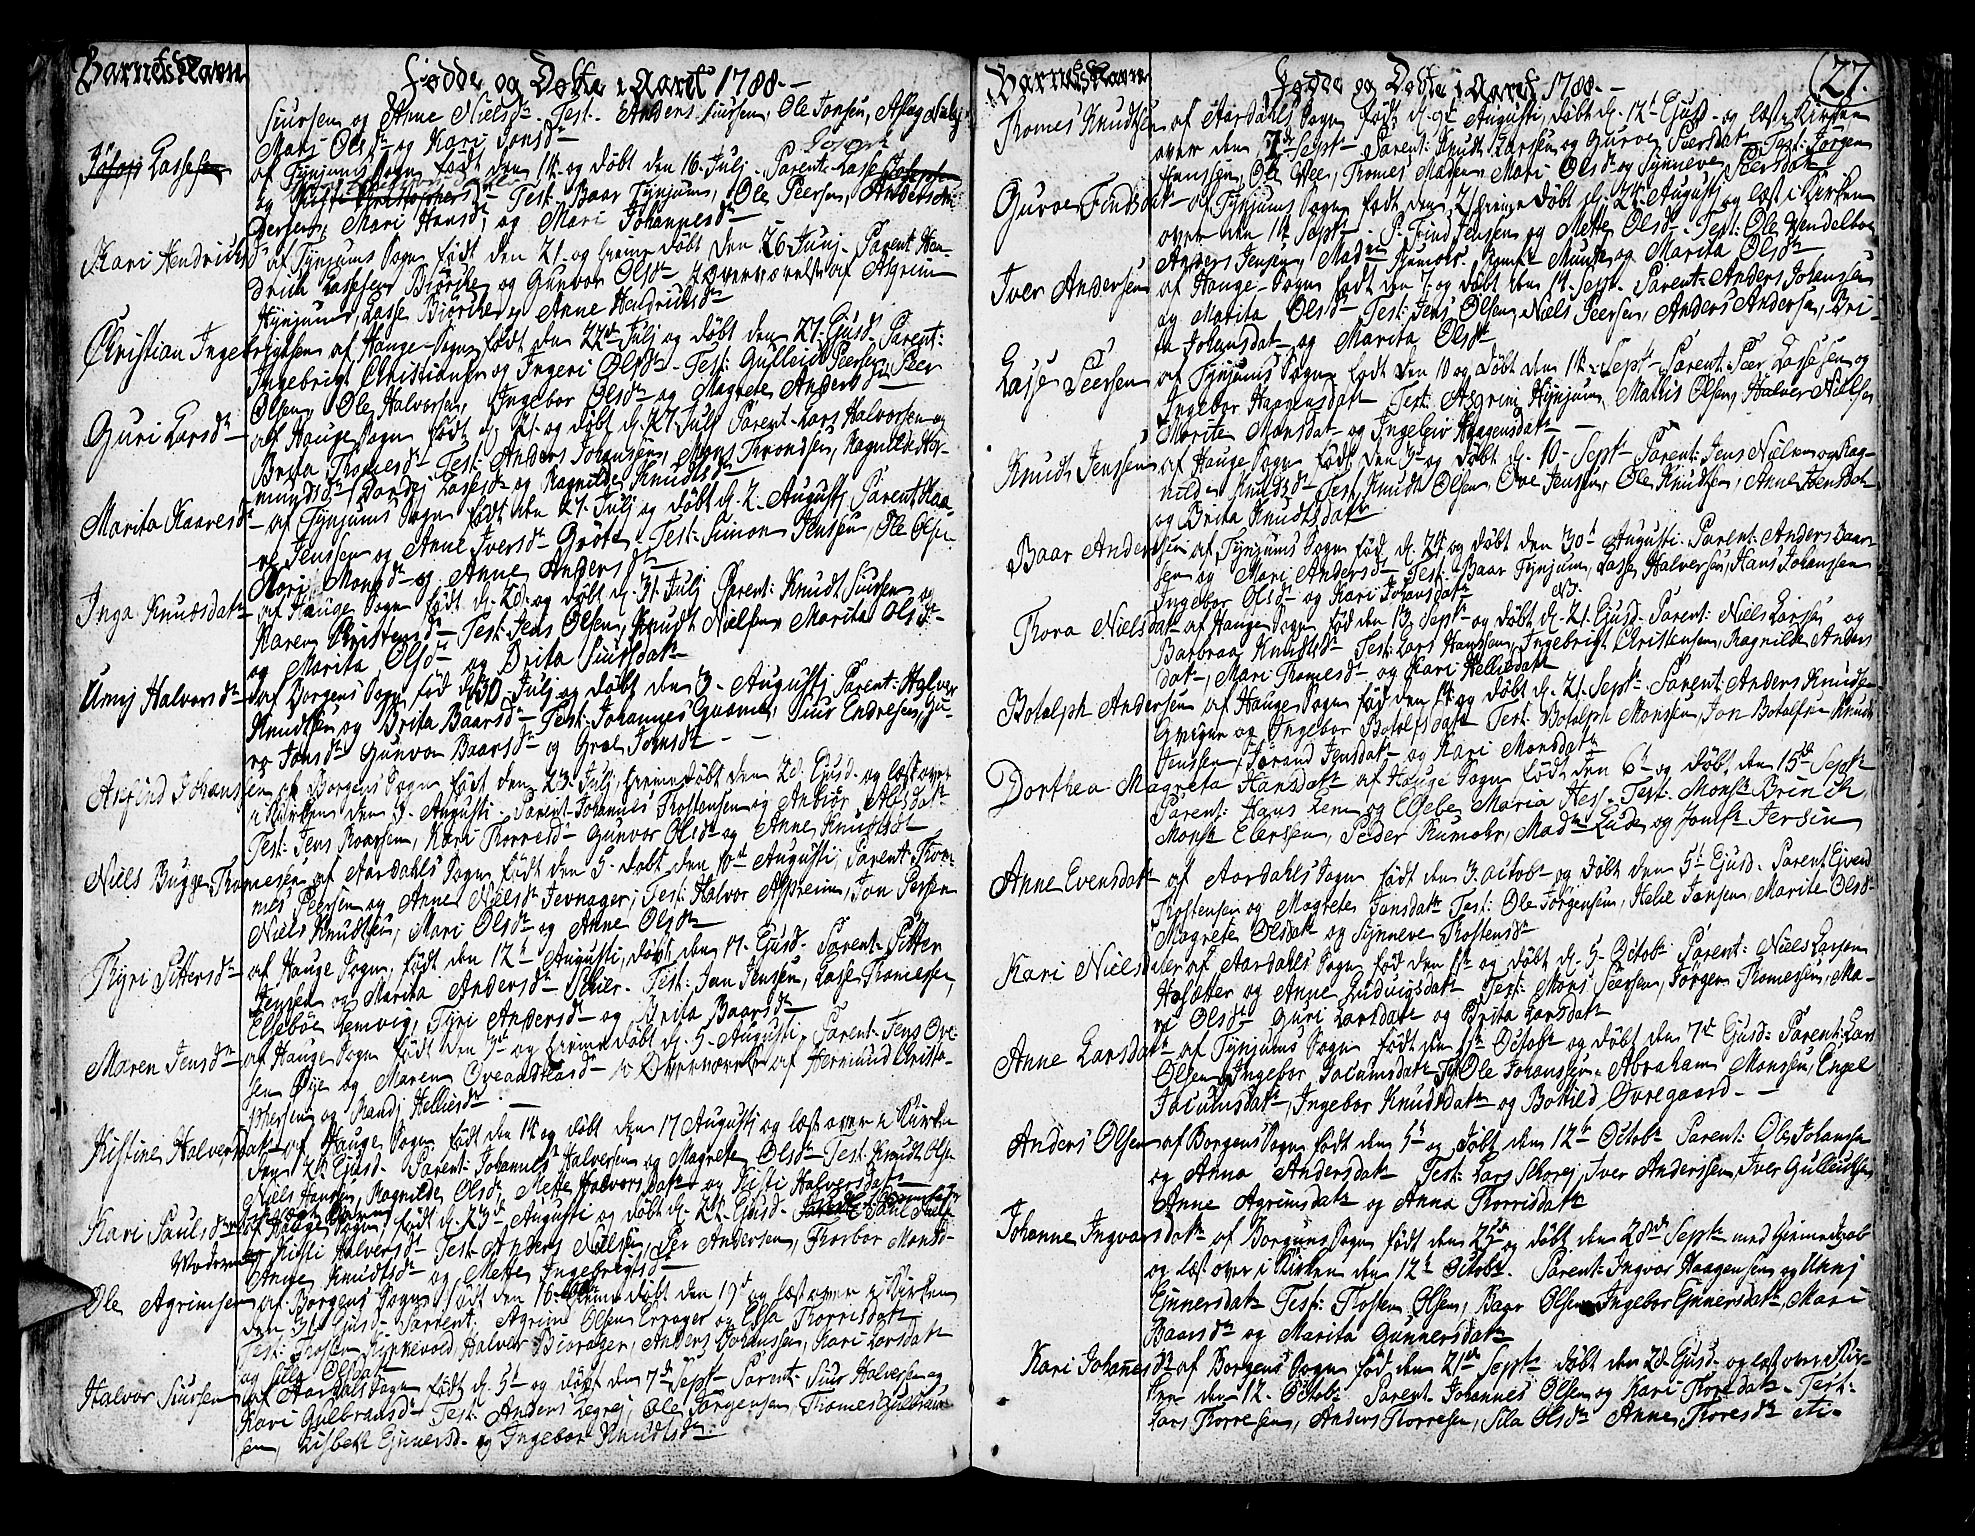 Barnets Navn
Fødde og Døbte i Aaret 1788
Siursen og Anne Nielsdr. Test. Anders Siursen, Ole Jonsen, Aslag
Mari Olsdr og Kari Jonsdr
Lassesen af Tynjums Sogn født den 14 og døbt den 16 Julj. Parent: Lasse
og Test: Baar Tynjum, Ole Peersen, Anders
Mari Hansdr og Mari Johannesdr
Kari Hendrichsdr af Tynjums Sogn født den 21 og hiemedøbt den 26 Junj. Parent: Hen-
drich Lassesen Biørche og Gunvor Olsdr i Overværelse af Asgrim
Hynjum, Lasse Biørche og Anne Hendrichsdr
Christian Ingebrigtsen af Hauge Sogn født den 22de Julj og døbt den 27 Ejusd. Parent:
Ingebrigt Christiansen og Ingeri Olsdr. Test: Gulleich Peersen, Peer
Olsen, Ole Halversen, Ingebor Olsdr og Magrete Andersdr
Guri Larsdr af Hauge Sogn født d. 21 og døbt d. 27 Julj Parent: Lars Halvorsen og
Brita Thomesdr Test: Anders Johansen, Mons Trondsen, Ragnilde Her-
mundsdr, Lassesdr og Ragnilde Knudtsdr
Marita Kaaresdr af Tynjums Sogn født den 27 Julj og døbt d. 2 Augustj Parent: Kaa-
re Jenssen og Anne Iversdr Grøte. Test: Simon Jenssen, Ole Olsen
Mari Monsdr og Anne Andersdr
Inga Knudsdatr af Hauge Sogn født d. 28 og døbt d. 31 Julj Parent: Knudt Siursen og
Karen Christensdr Test: Jens Olsen, Knudt Nielsen Marita Olsdr
og Marita Olsdr og Brita Siursdatr
Unnj Halvorsdr af Borgens Sogn fød d. 30 Julj og døbt den 3 Augustj Parent: Halver
Knudtsen og Brita Baarsdr Test: Johannes Siur Endresen, Gu-
ro Jonsdr Gunvor Baarsdr og Groe Jonsdr
Arfind Johansen af Borgens Sogn født den 23 Julj, hiemedøbt den 28 Ejusd. og læst over
i Kirken den 3 Augusti. Parent: Johannes Thostensen og Anbiør Absdatr
Test: Jens Roarsen, Kari Thorresdr Gunvor Olsdr og Anne Knudtsdr
Niels Bugge Thomesen af Aardahls Sogn født den 5. døbt den 10de Augusti, Parent: Tho-
mes Peersen og Anne Nielsdr Jevnager; Test: Halvor Asperim, Jon Persen
Niels Knudtsen, Mari Olsdr og Anne Olsdr
Thyri Pittersdr af Hauge Sogn, født den 12te Augusti, døbt den 17 Ejusd. Parent: Pitter
Jenssen og Marita Andersdr Skier. Test: Jan Jensen, Lasse Thomesen,
Elsebøe Lemvig, Tyri Andersdr og Brita Baarsdr
Maren Jensdr af Hauge Sogn født den 3d og hiemedøbt d. 5 Augusti, Parent: Jens Ove-
sen Øye og Maren i Overværelse af Hermund Christo-
phersen og Randj Helliesdr
Kistine Halversdatr af Hauge Sogn født den 14 og døbt den 17 Augusti og læst over i Kirken
den 24 Ejusd. Parent: Johannes Halversen og Magrete Olsdr Test: Knudt Olsen
Niels Hansen, Ragnilde Olsdr, Mette Halvorsdatr og Kisti Halversdatr
Kari Paulsdr af Hauge Sogn, født d. 23d Augusti og døbt d. 24 Ejusd. Paul
og Kisti Halversdr Test: Anders Nielsen, Per Andersen, Thorbor Monsdr
Anne Knudtsdr og Mette Ingebregtsdr
Ole Agrimsen af Borgens Sogn født den 16 hiemedøbt den 19d og læst over i Kirken
den 31 Ejusd. Parent: Agrim Olsen Erroger og Elsa Thorrisdatr
Test: Thosten Kynnevold, Halver Biørager, Anders Johanssen, Kari Larsdatr
og Sila Olsdatr
Halvor Siursen af Aardals Sogn født d. 5t og døbt den 7de Septr Parent: Siur Halversen og
Kari Gulbransdr Test: Anders Legrej, Ole Jørgensen, Thomes Gulbran-
sen, Lisbeth Ejnersd. og Ingebor Knudtsdr
27.
Barnets Navn
Fødde og Døbte i Aaret 1788
Thomes Knudtsen af Aardahls Sogn født d. 9t Augusti, døbt d. 12t Ejusd. og læst i Kirken
over den 7de Septr Parent: Knudt Larsen og Gurve Peersdatr Test: Jørgen
Jenssen, Ole Wee, Thomes Madsen Mari Olsdr og Synneve Peersdatr
Gurve Findsdatr af Tynjums Sogn født den 21 hieme døbt d. 24 Augustj og læst i Kirken
over den 14 Septr P. Find Jensen og Mette Olsdr. Test: Ole Wendelboe
Anders Jensen, Madme Rumohr, Munch og Marita Olsdr
Iver Andersen af Hauge Sogn født den 7 og døbt den 14 Sept. Parent: Anders Johansen
og Marita Olsdr Test: Jens Olsen, Niels Peersen, Anders Andersen, Bri-
ta Johansdatr og Marita Olsdr
Lasse Peersen af Tynjums Sogn født den 10 og døbt den 14 Septr Parent: Peer Lassesen og
Ingebor Haagensdatr Test: Asgrim Hynjum, Mattis Olsen, Halver Nielsen
Marite Monsdatr og Ingeleiv Haagensdatr
Knudt Jenssen af Hauge Sogn født den 3d og døbt d. 10 Septr Parent: Jens Nielsen og Rag-
nilde Knudtsdr Test: Knudt Olsen, Ove Jensen, Ole Knudtsen, Anne Jensdatr
og Brita Knudtsdatr
Baar Andersen af Tynjums Sogn fød d. 24 og døbt den 30t Augusti. Parent: Anders Baar-
sen og Mari Andersdr Test: Baar Tynjum, Lasse Halversen, Hans Johanssen
Ingebor Olsdr og Kari Johansdatr
NB.
Thora Nielsdatr af Hauge Sogn fød den 13 Septr og døbt d. 21 Ejusd. Parent: Niels Larsen og
Barbraa Knudtsdr Test: Lars Hanssen, Ingebrigt Christensen, Ragnilde Anders
datr, Mari Thomesdr og Kari Helliesdatr
Botolph Andersen af Hauge Sogn fød den 14 og døbt d. 21 Septr Parent: Anders Knudsen
Gvigne og Ingebor Botolfsdatr Test: Botolph Monsen, Jon Botolfsen Knudt
Jenssen, Jorand Jensdatr og Kari Monsdatr
Dorthea Magreta Hansdatr af Hauge Sogn født den 6te og døbt den 15de Septr
Parent: Hans Lem og Elsebe Maria Hess. Test: Monsr Brinch,
Monsr Elersen, Peder Rumohr, Madme Lude og Jomfr Jersin
Anne Evensdatr af Aardahls Sogn født den 3 Octobr og døbt den 5t Ejusd. Parent: Ejvend
Thostensen og Magrete Jonsdatr Test: Ole Jørgensen, Helie Jonsen, Marite Olsdr
Magrete Olsdatr og Synneve Thostensdr
Kari Nielsdatr af Aardahls Sogn fød den 1ste og døbt d. 5 Octobr Parent: Niels Larsen
Hofætter og Anne Ludvigsdatr Test: Mons Peersen, Jørgen Thomesen, Ma-
ri Olsdr Guri Larsdatr og Brita Larsdatr
Anne Larsdatr af Tynjums Sogn født den 1ste Octobr og døbt den 7de Ejusd: Parent: Lars
Olsen Ingebor Jacumsdatr Test Ole Johanssen Abraham Monsen, Engel
Jacumsdatr, Ingebor Knudtsdatr og Botild Øvregaard
Anders Olsen af Borgens Sogn født den 5t og døbt den 12te Octobr Parent: Ole Johansen
og Anna Andersdatr Test: Lars Skorej, Iver Anderssen, Iver Gulleichsen
Anne Agrimsdatr og Anna Thorrisdatr
Johanne Ingvarsdatr af Borguns Sogn født den 25de og døbt den 28de Septr med hiemedaab
og læst over i Kirken den 12te Octobr. Parent: Ingvar Haagensen og Unnj
Ejnersdatr Test: Thosten Olsen, Baar Olsen Ingebor Ejnersdatr, Mari
Baarsdr og Marita Gunnersdatr
Kari Johannesdr af Borgens Sogn fød den 21de Septr døbt den 28 Ejusd. og læst over i Kir-
ken den 12 Octobr Parent: Johannes Olsen og Kari Thoresdatr Test:
Lars Thorresen, Anders Thorresen, Sila Olsdr Anne Thoresdr